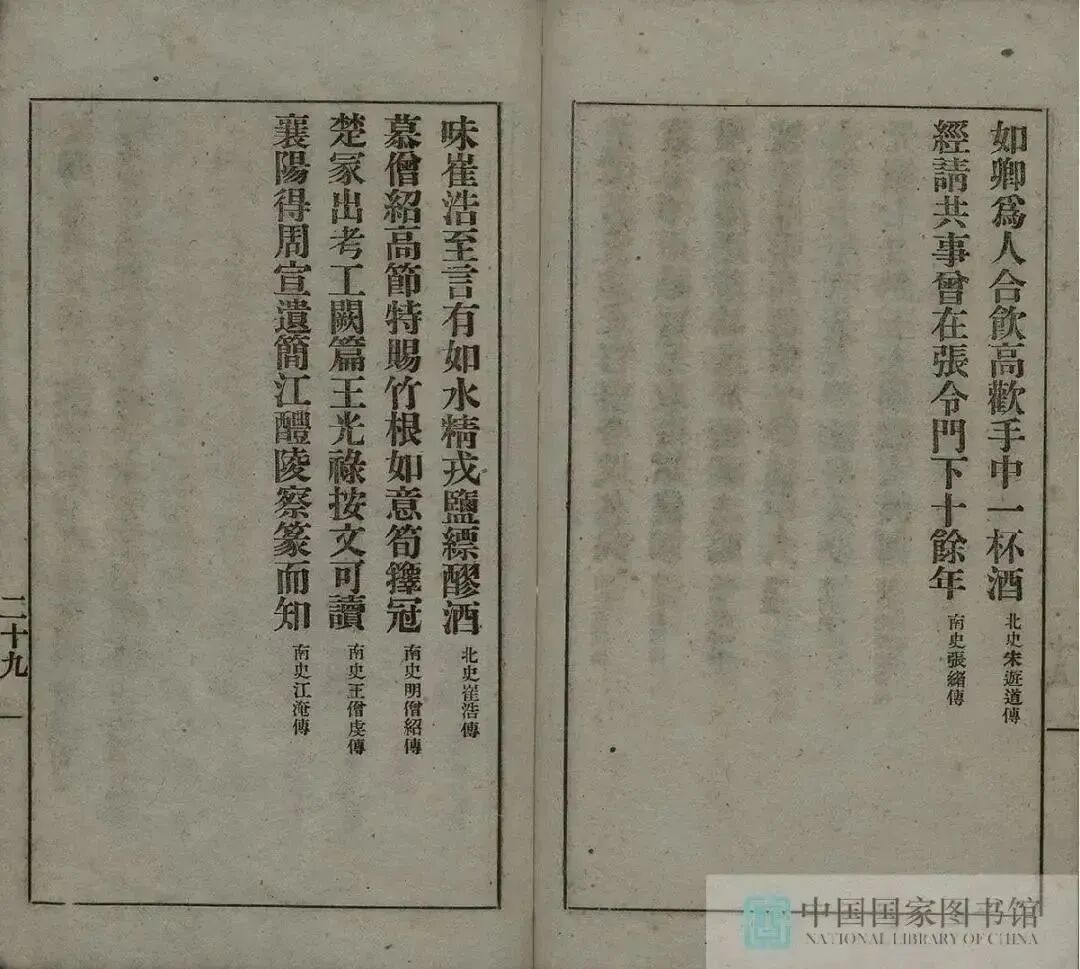 如卿爲人合飲高歡手中一杯酒 北史宋遊道傳
經請共事曾在張令門下十餘年 南史張緒傳
味崔浩至言有如水精戎鹽縹醪酒 北史崔浩傳
慕僧紹高節特賜竹根如意筍籜冠 南史明僧紹傳
楚冢出考工闕篇王光祿按文可讀 南史王僧虔傳
襄陽得周宣遺簡江醴陵察篆而知 南史江淹傳
二十九
中国国家图书馆
NATIONAL LIBRARY OF CHINA